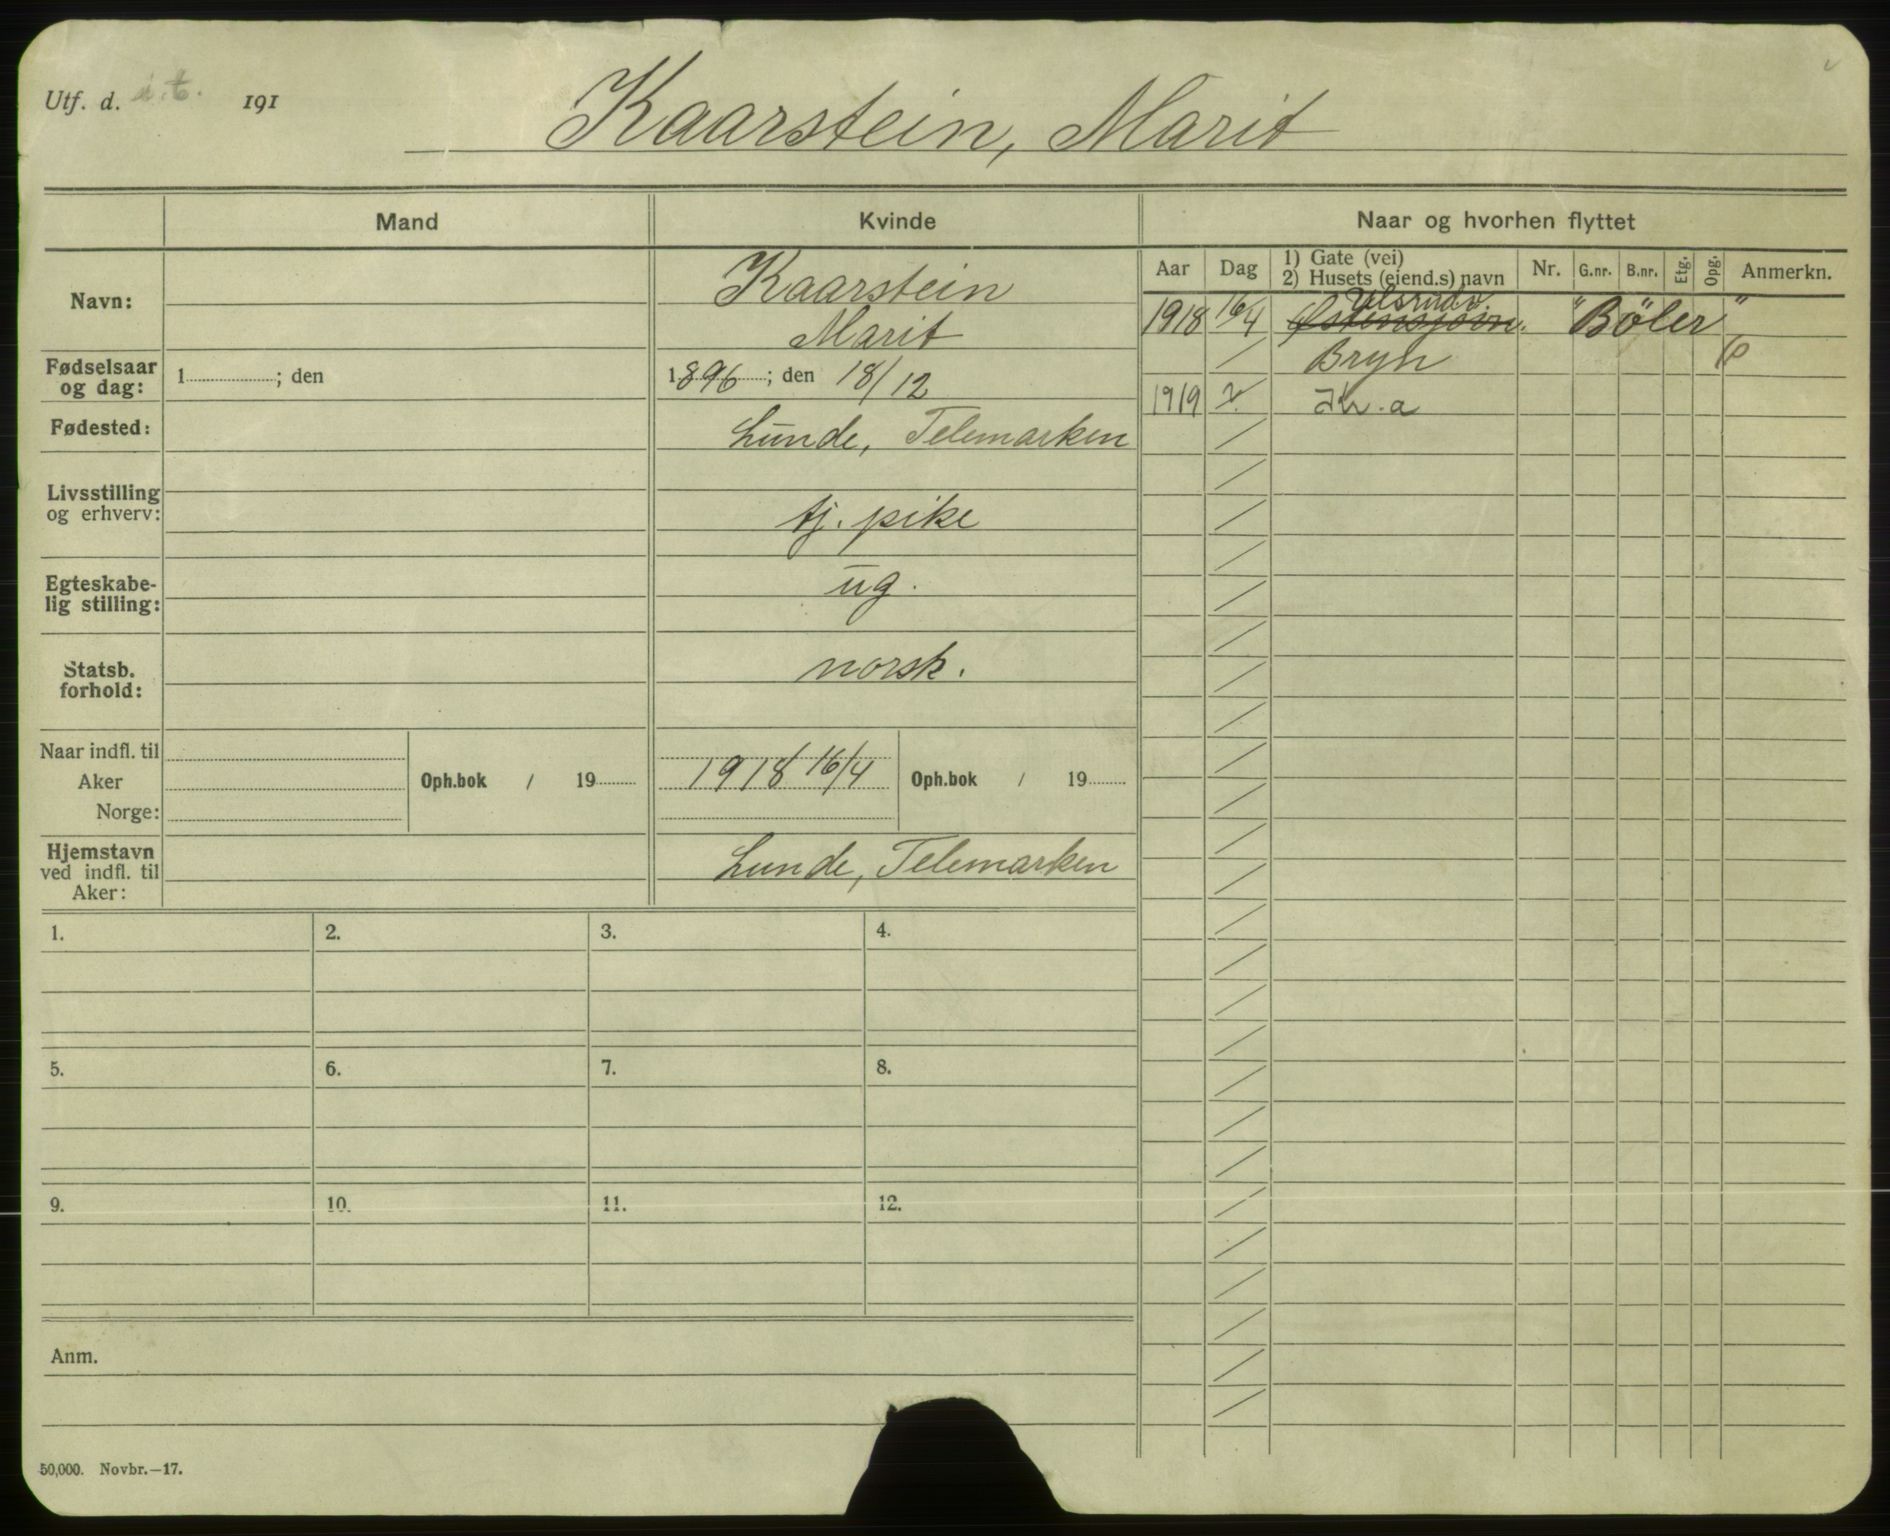 Utf. d. i.t. 191
Kaarstein, Marit
Mand
Kvinde
Naar og hvorhen flyttet
Navn:
Kaarstein
Marit
Fødselsaar
og dag:
1 ; den
1896 ; den 18/12
Fødested:
Lunde, Telemarken
Livsstilling
og erhverv:
tj. pike
Egteskabe-
lig stilling:
ug.
Statsb.
forhold:
norsk.
Naar indfl. til
Aker
Norge:
Oph.bok / 19
1918 16/4
Oph.bok / 19
Hjemstavn
ved indfl. til
Aker:
Lunde, Telemarken
1.
2.
3.
4.
5.
6.
7.
8.
9.
10.
11.
12.
Anm.
50,000. Novbr.—17.
Aar
Dag
1) Gate (vei)
2) Husets (eiend.s) navn
Nr.
G.nr.
B.nr.
Etg.
Opg.
Anmerkn.
Ulsrudv.
1918 16/4 Østensjøvn. "Bøler"
/ Bryn
1919